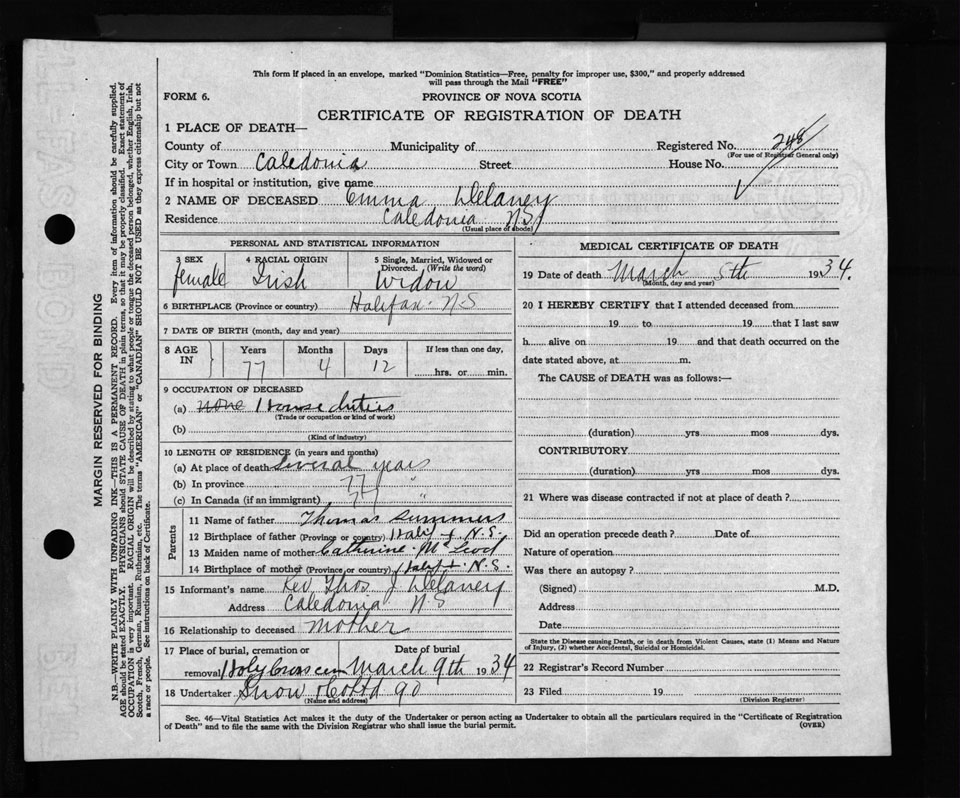 This form if placed in an envelope, marked "Dominion Statistics—Free, penalty for improper use, $300," and properly addressed
will pass through the Mail "FREE"
FORM 6.
PROVINCE OF NOVA SCOTIA
CERTIFICATE OF REGISTRATION OF DEATH
1 PLACE OF DEATH—
County of Municipality of Registered No. 248
(For use of Registrar General only)
City or Town Caledonia Street House No.
If in hospital or institution, give name
2 NAME OF DECEASED Emma Delaney
Residence Caledonia N.S.
(Usual place of abode)
PERSONAL AND STATISTICAL INFORMATION
3 SEX female
4 RACIAL ORIGIN Irish
5 Single, Married, Widowed or Divorced. (Write the word) Widow
6 BIRTHPLACE (Province or country) Halifax N-S
7 DATE OF BIRTH (month, day and year)
8 AGE IN Years 77 Months 4 Days 12 If less than one day, hrs. or min.
9 OCCUPATION OF DECEASED
(a) none House duties
(Trade or occupation or kind of work)
(b)
(Kind of industry)
10 LENGTH OF RESIDENCE (in years and months)
(a) At place of death several years
(b) In province 77 "
(c) In Canada (if an immigrant) 77 "
Parents
11 Name of father Thomas Summers
12 Birthplace of father (Province or country) Halifx N.S.
13 Maiden name of mother Catherine McLeod
14 Birthplace of mother (Province or country) Halifx N.S.
15 Informant's name Rev Thos J Delaney
Address Caledonia N S
16 Relationship to deceased mother
17 Place of burial, cremation or removal Holy Cross cem
Date of burial March 9th 1934
18 Undertaker Snow
(Name and address)
MEDICAL CERTIFICATE OF DEATH
19 Date of death March 5th 1934.
(Month, day and year)
20 I HEREBY CERTIFY that I attended deceased from
19 to 19 that I last saw
h alive on 19 and that death occurred on the
date stated above, at m.
The CAUSE of DEATH was as follows:—
(duration) yrs mos dys.
CONTRIBUTORY
(duration) yrs mos dys.
21 Where was disease contracted if not at place of death?
Did an operation precede death? Date of
Nature of operation
Was there an autopsy?
(Signed) M.D.
Address
Date
State the Disease causing Death, or in death from Violent Causes, state (1) Means and Nature
of Injury, (2) whether Accidental, Suicidal or Homicidal.
22 Registrar's Record Number
23 Filed 19
(Division Registrar)
Sec. 46—Vital Statistics Act makes it the duty of the Undertaker or person acting as Undertaker to obtain all the particulars required in the "Certificate of Registration
of Death" and to file the same with the Division Registrar who shall issue the burial permit.
(OVER)
MARGIN RESERVED FOR BINDING
N.B.—WRITE PLAINLY WITH UNFADING INK—THIS IS A PERMANENT RECORD. Every item of information should be carefully supplied.
AGE should be stated EXACTLY. PHYSICIANS should STATE CAUSE OF DEATH in plain terms, so that it may be properly classified. Exact statement of
OCCUPATION is very important. RACIAL ORIGIN will be described by stating to what people or tongue the deceased person belonged, whether English, Irish,
Scotch, French, German, Russian, Ruthenian, etc. The terms "AMERICAN" or "CANADIAN" SHOULD NOT BE USED as they express citizenship but not
a race or people. See instructions on back of Certificate.